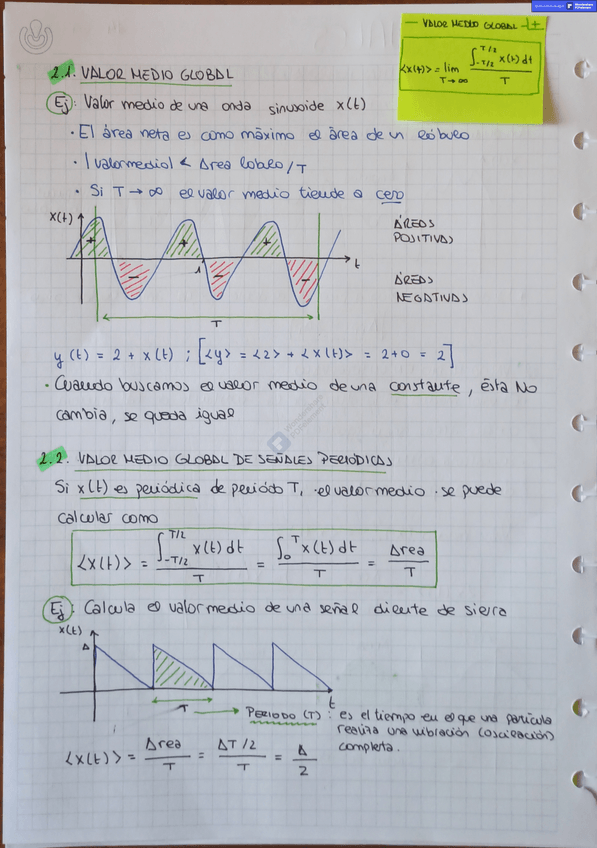 — VALOR MEDIO GLOBAL —
⟨x(t)⟩ = lim T→∞ ∫_{-T/2}^{T/2} x(t) dt / T
2.1. VALOR MEDIO GLOBAL
Ej: Valor medio de una onda sinusoide x(t)
· El área neta es como máximo el área de un lóbulo
· |valor medio| < Área lóbulo/T
· Si T → ∞ el valor medio tiende a cero
x(t)
+ + +
ÁREAS
POSITIVAS
1 t
- - -
ÁREAS
NEGATIVAS
T
y(t) = 2 + x(t) ; [⟨y⟩ = ⟨2⟩ + ⟨x(t)⟩ = 2+0 = 2]
· Cuando buscamos el valor medio de una constante, ésta NO
cambia, se queda igual
2.2. VALOR MEDIO GLOBAL DE SEÑALES PERIÓDICAS
Si x(t) es periódica de periódo T, el valor medio se puede
calcular como
⟨x(t)⟩ = ∫_{-T/2}^{T/2} x(t) dt / T = ∫_0^T x(t) dt / T = Área / T
Ej: Calcula el valor medio de una señal diente de sierra
x(t)
A
t
T → PERIODO (T) : es el tiempo en el que una partícula
realiza una vibración (oscilación)
completa.
⟨x(t)⟩ = Área / T = AT/2 / T = A / 2